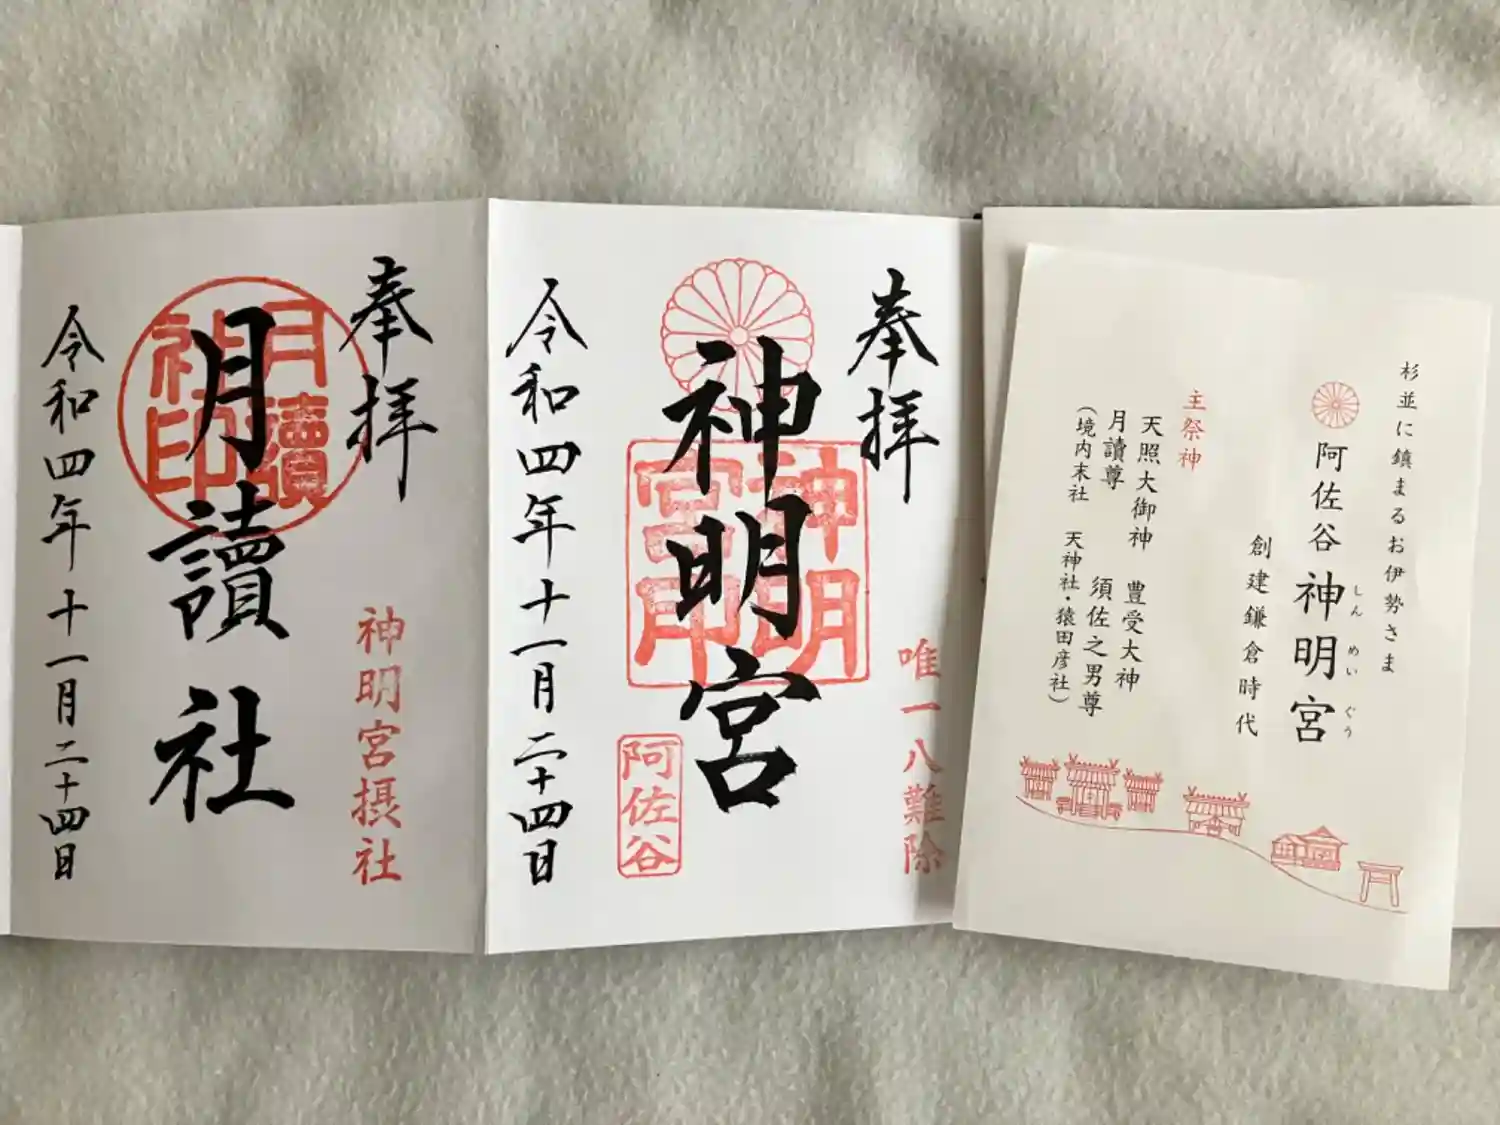 杉並に鎮まるお伊勢さま
阿佐谷神明宮
しんめいぐう
創建鎌倉時代
主祭神
天照大御神 豊受大神
月讀尊 須佐之男尊
(境内末社 天神社・猿田彦社)
奉拝
唯一八難除
神明宮
神明宮印
阿佐谷
令和四年十一月二十四日
奉拝
神明宮摂社
月讀社
月讀社印
令和四年十一月二十四日